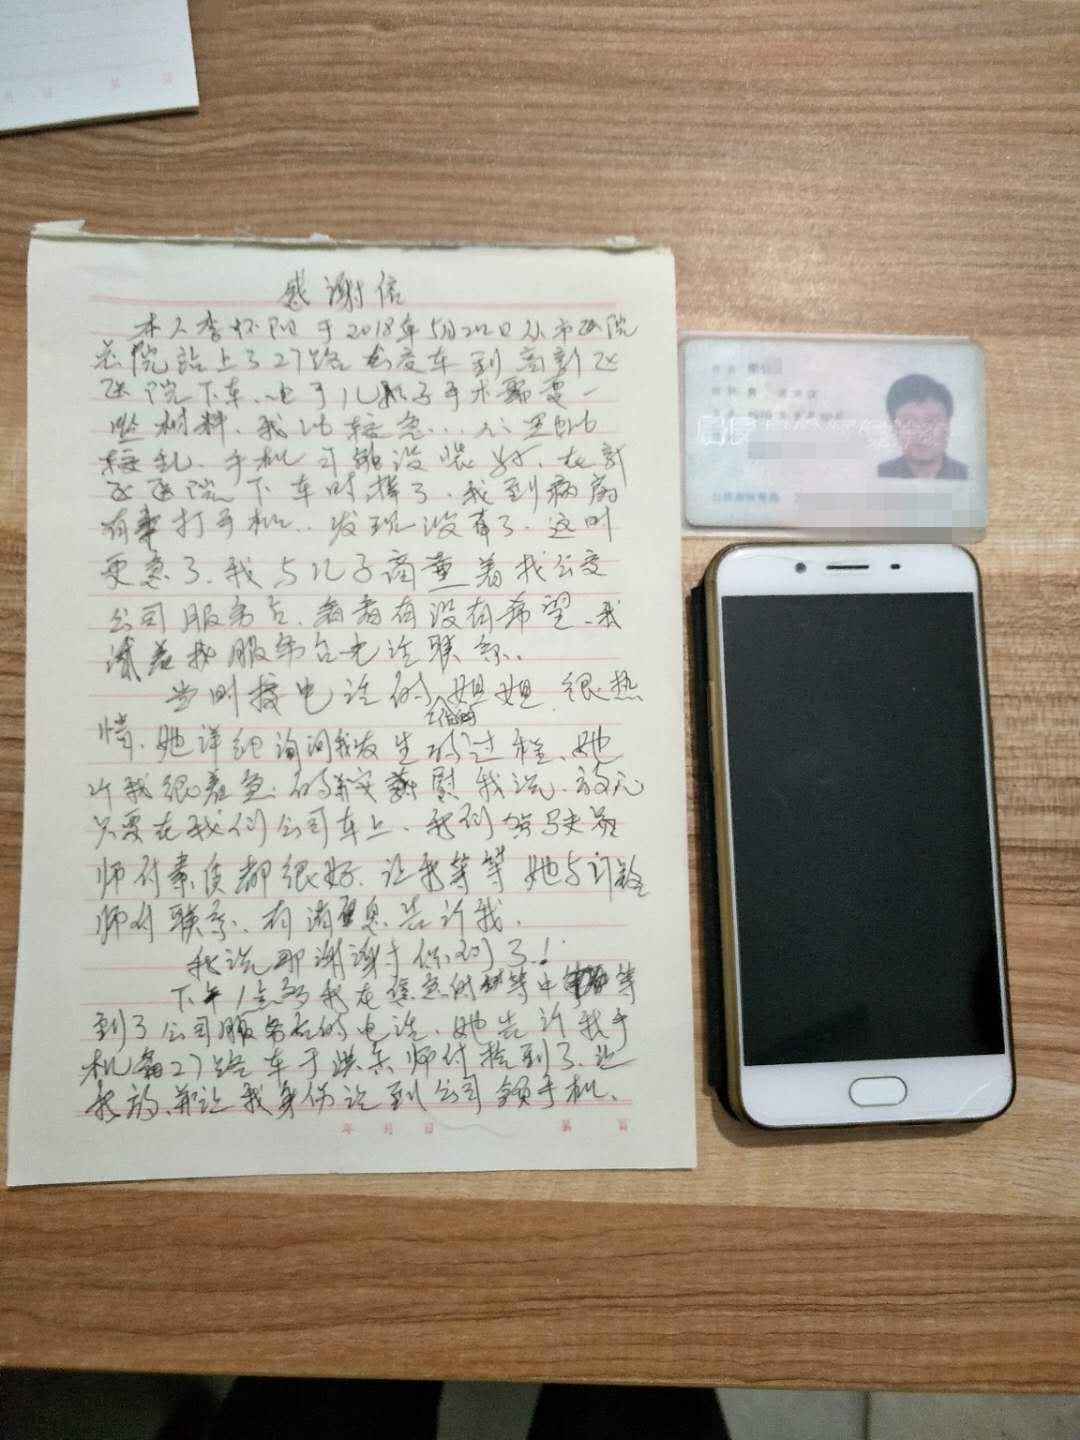 感谢信
本人李怀阳于2018年5月22日从市医院
总院站上了27路公交车到高新区
医院下车、由于儿子手术需要一
些材料、我比较急...心里也比
较乱、手机可能没装好、在新
区医院下车时掉了、我到病房
有事打手机..发现没有了、这时
更急了、我与儿子商量着找公交
公司服务台、看看有没有希望、我
试着找服务台电话联系、
当时接电话的姐姐很热
情、她详细询问我发生的过程、她
听我很着急、安慰我说、放心
只要在我们公司车上、我们驾驶员
师付素质都很好、让我等等她与
师付联系、有消息告许我、
我说那谢谢你们了!
下午1点多我在焦急的等中等
到了公司服务台的电话、她告许我手
机27路车于洪东师付捡到了、让
我放、并让我身份证到公司领手机、
年 月 日 第 页
月 日 第 页